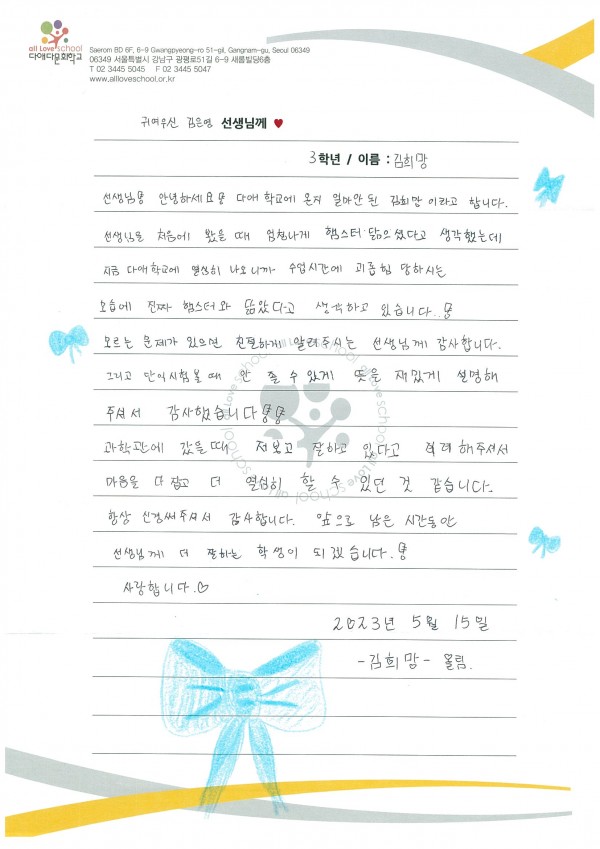 all Love school
다애다문화학교
Saerom BD 6F, 6-9 Gwangpyeong-ro 51-gil, Gangnam-gu, Seoul 06349
06349 서울특별시 강남구 광평로51길 6-9 새롬빌딩6층
T 02 3445 5045 F 02 3445 5047
www.alloveschool.or.kr
귀여우신 김은영 선생님께 ♥
3학년 / 이름 : 김희망
선생님 안녕하세요 다애 학교에 온지 얼마안 된 김희망 이라고 합니다.
선생님을 처음에 봤을 때 엄청나게 햄스터 닮으셨다고 생각했는데
지금 다애학교에 열심히 나오니까 수업시간에 괴롭힘 당하시는
모습에 진짜 햄스터와 닮았다고 생각하고 있습니다..
모르는 문제가 있으면 친절하게 알려주시는 선생님께 감사합니다.
그리고 단어시험 볼 때 안 졸 수 있게 뜻을 재밌게 설명해
주셔서 감사했습니다
과학관에 갔을때 저보고 잘하고 있다고 격려해주셔서
마음을 다 잡고 더 열심히 할 수 있던 것 같습니다.
항상 신경써주셔서 감사합니다. 앞으로 남은 시간동안
선생님께 더 잘하는 학생이 되겠습니다.
사랑합니다.♡
2023년 5월 15일
-김희망- 올림.
all Love school all Love school all Love school